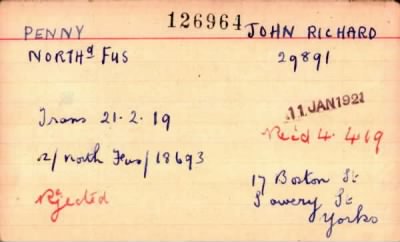 PENNY 126964 JOHN RICHARD
NORTHd FUS 29891
11 JAN 1921
Trans 21.2.19
Recd 4.4.19
2/ North Fus/18693
17 Boston St
Rejected
Sowery St
Yorks